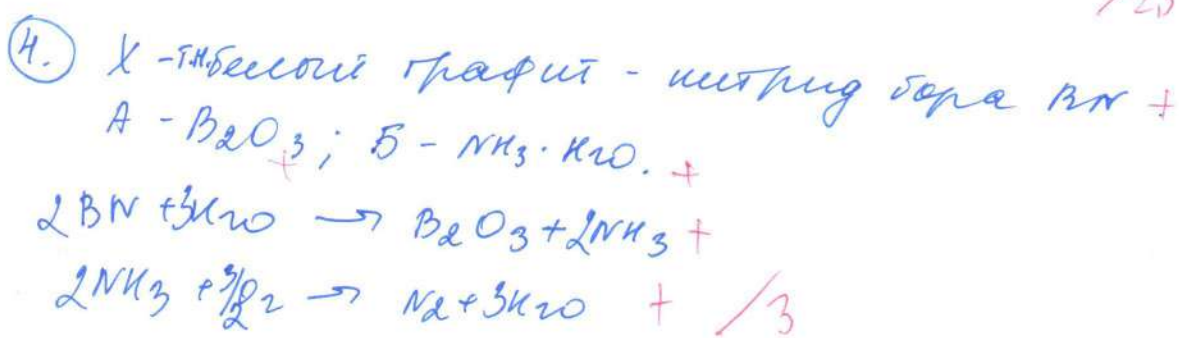 /20
4. X - т.н. белый графит - нитрид бора BN +
A - B2O3; Б - NH3 · H2O. +
+
2BN + 3H2O → B2O3 + 2NH3 +
2NH3 + 3/2O2 → N2 + 3H2O + /3